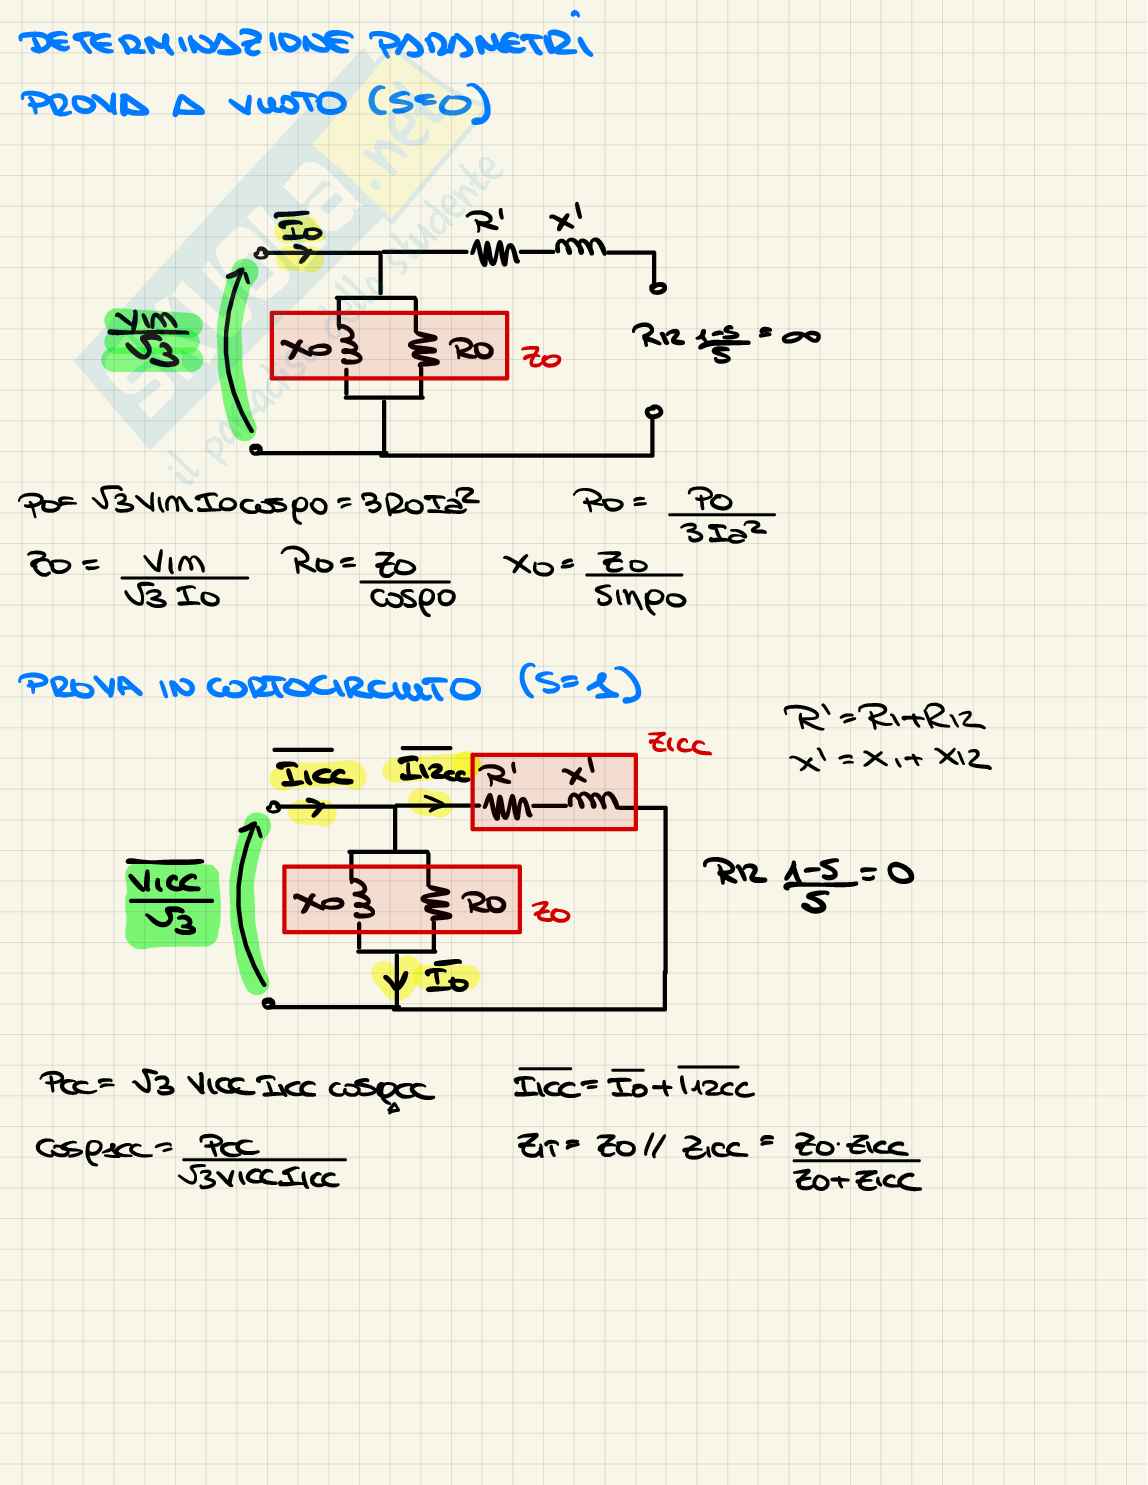 DETERMINAZIONE PARAMETRI
PROVA A VUOTO (S=0)
I0
R' X'
V1m/√3
X0 R0 Z0
R12 1-S/S = ∞
P0 = √3 V1m I0 cosφ0 = 3R0Ia² R0 = P0/3Ia²
Z0 = V1m/√3 I0 R0 = Z0/cosφ0 X0 = Z0/sinφ0
PROVA IN CORTOCIRCUITO (S=1)
R' = R1+R12
X' = X1+X12
Z1CC
I1CC I12CC R' X'
V1CC/√3
X0 R0 Z0
R12 1-S/S = 0
I0
PCC = √3 V1CC I1CC cosφCC I1CC = I0 + I12CC
cosφ1CC = PCC/√3V1CCI1CC Z1T = Z0 // Z1CC = Z0·Z1CC/Z0+Z1CC
SKUOLA.net
il paradiso dello studente